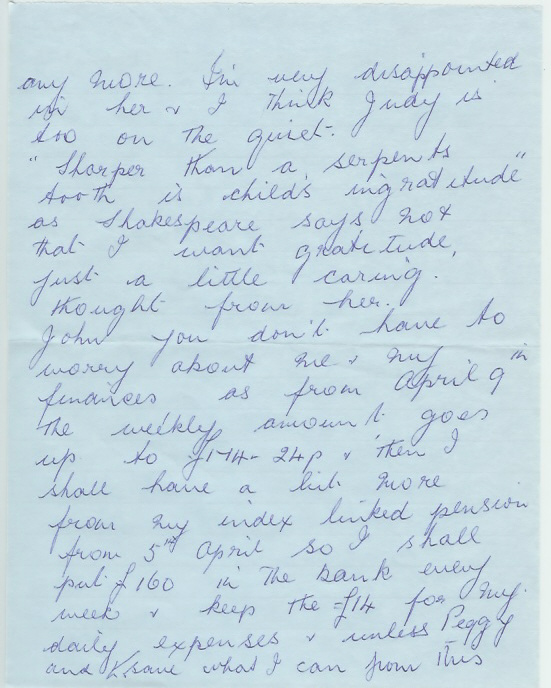 any more. I'm very disappointed
in her & I think Judy is
too on the quiet.
"Sharper than a serpents
tooth is childs ingratitude"
as Shakespeare says not
that I want gratitude,
just a little caring.
thought from her.
John you don't have to
worry about me & my
finances as from April 9th
the weekly amount goes
up to £174-24p & then I
shall have a bit more
from my index linked pension
from 5th April so I shall
put £160 in the bank every
week & keep the £14 for my
daily expenses & unless Peggy
and I save what I can from this